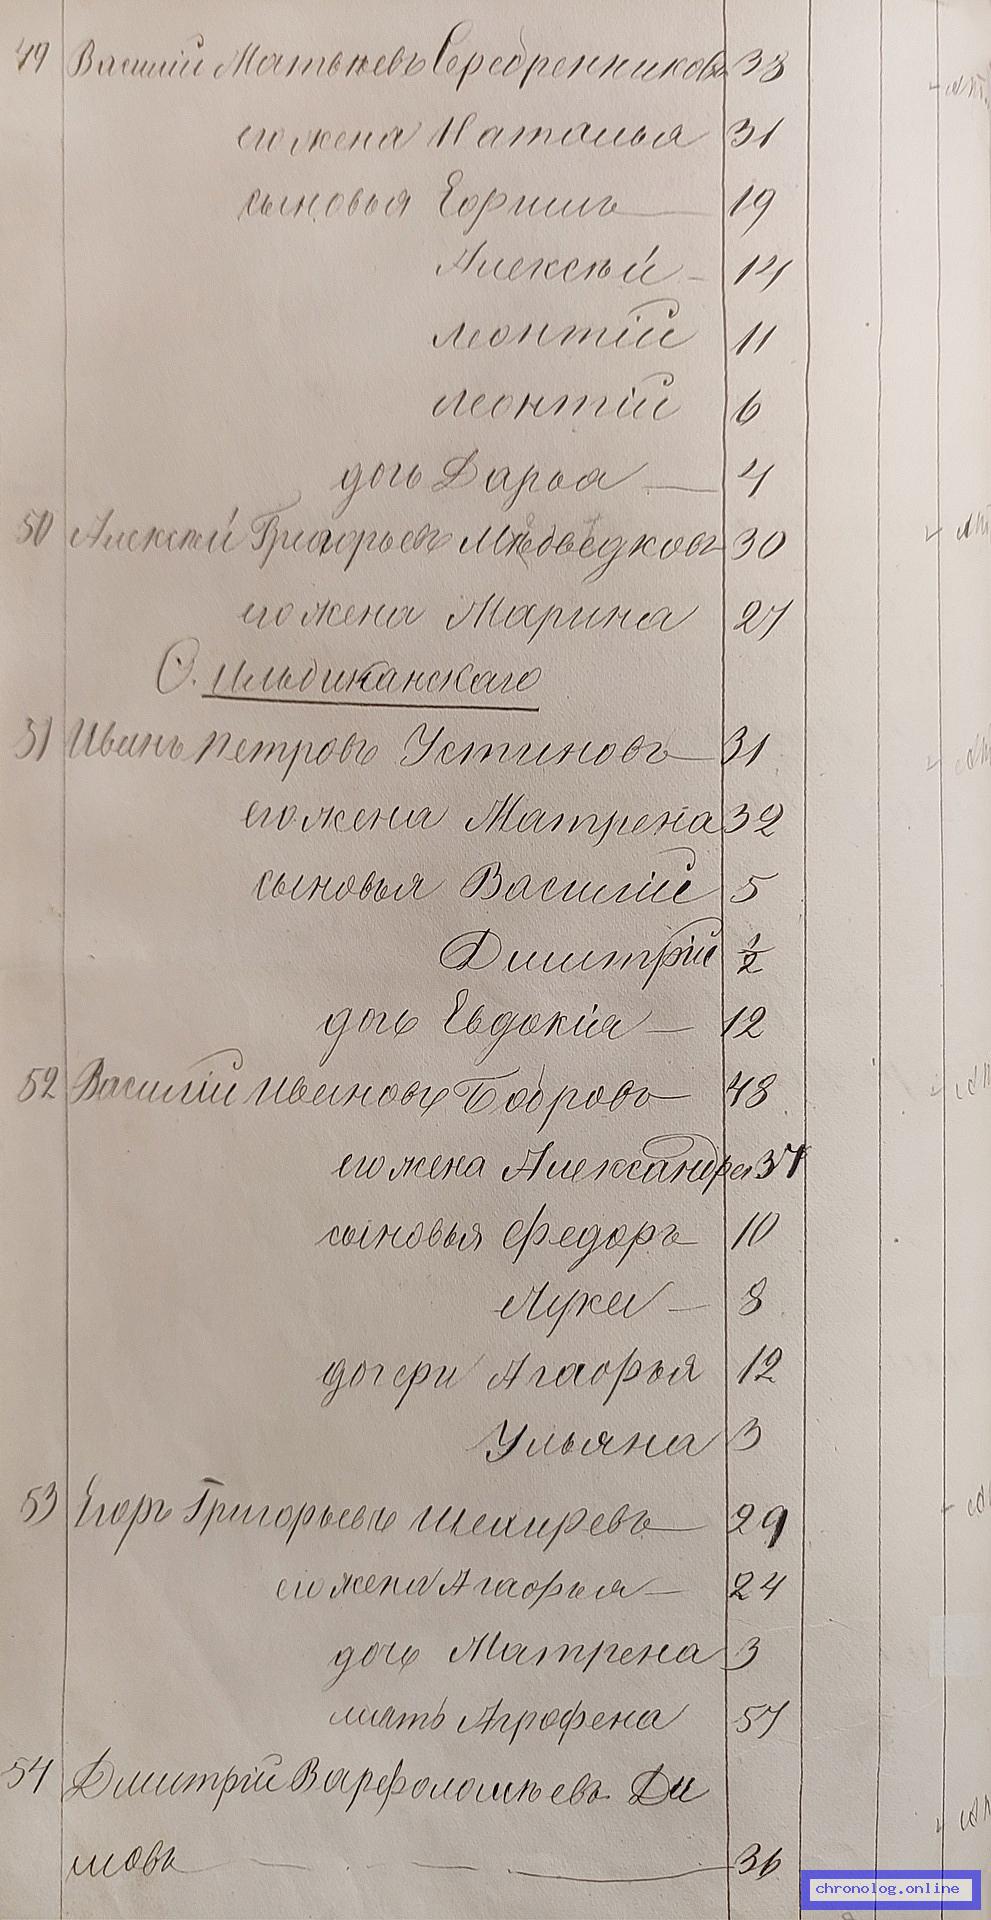 49 Василій Матвѣевъ Серебренниковъ 38
его жена Наталья 31
сыновья 19
Алексѣй 14
Леонтій 11
Леонтій 6
дочь Дарья 4
50 Алексѣй Григорьевъ Медвѣдковъ 30
его жена Марина 27
С. Ильдиканскаго
51 Иванъ Петровъ Устиновъ 31
его жена Матрена 32
сыновья Василій 5
Дмитрій 1/2
дочь Евдокія 12
52 Василій Ивановъ Бобровъ 48
его жена Александра 37
сыновья Федоръ 10
Лука 8
дочери Агафья 12
Ульяна 3
53 Егоръ Григорьевъ 29
его жена Агафья 24
дочь Матрена 3
мать Агрофена 57
54 Дмитрій Варфоломѣевъ Ди
мовъ 36
chronolog.online